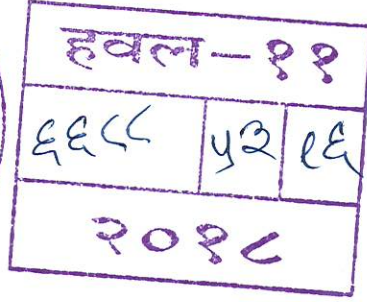 हवल-११
६६८८ ५२ ९६
२०१८